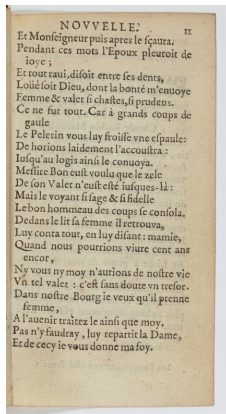 NOVVELLE. 11
Et Monſeigneur puis apres le ſçaura.
Pendant ces mots l'Epoux pleuroit de
ioye ;
Et tout raui, diſoit entre ſes dents,
Loüé ſoit Dieu, dont la bonté m'enuoye
Femme & valet ſi chaſtes, ſi prudens.
Ce ne fut tout. Car à grands coups de
gaule
Le Pelerin vous luy froiſſe vne eſpaule:
De horions laidement l'accouſtra :
Iuſqu'au logis ainſi le conuoya.
Meſſire Bon euſt voulu que le zele
De ſon Valet n'euſt eſté iuſques-là :
Mais le voyant ſi ſage & ſi fidelle
Le bon hommeau des coups ſe conſola.
Dedans le lit ſa femme il retrouva,
Luy conta tout, en luy diſant : mamie,
Quand nous pourrions viure cent ans
encor,
Ny vous ny moy n'aurions de noſtre vie
Vn tel valet : c'eſt ſans doute vn treſor.
Dans noſtre Bourg ie veux qu'il prenne
femme,
A l'auenir traitez le ainſi que moy.
Pas n'y faudray, luy repartit la Dame,
Et de cecy ie vous donne ma foy.